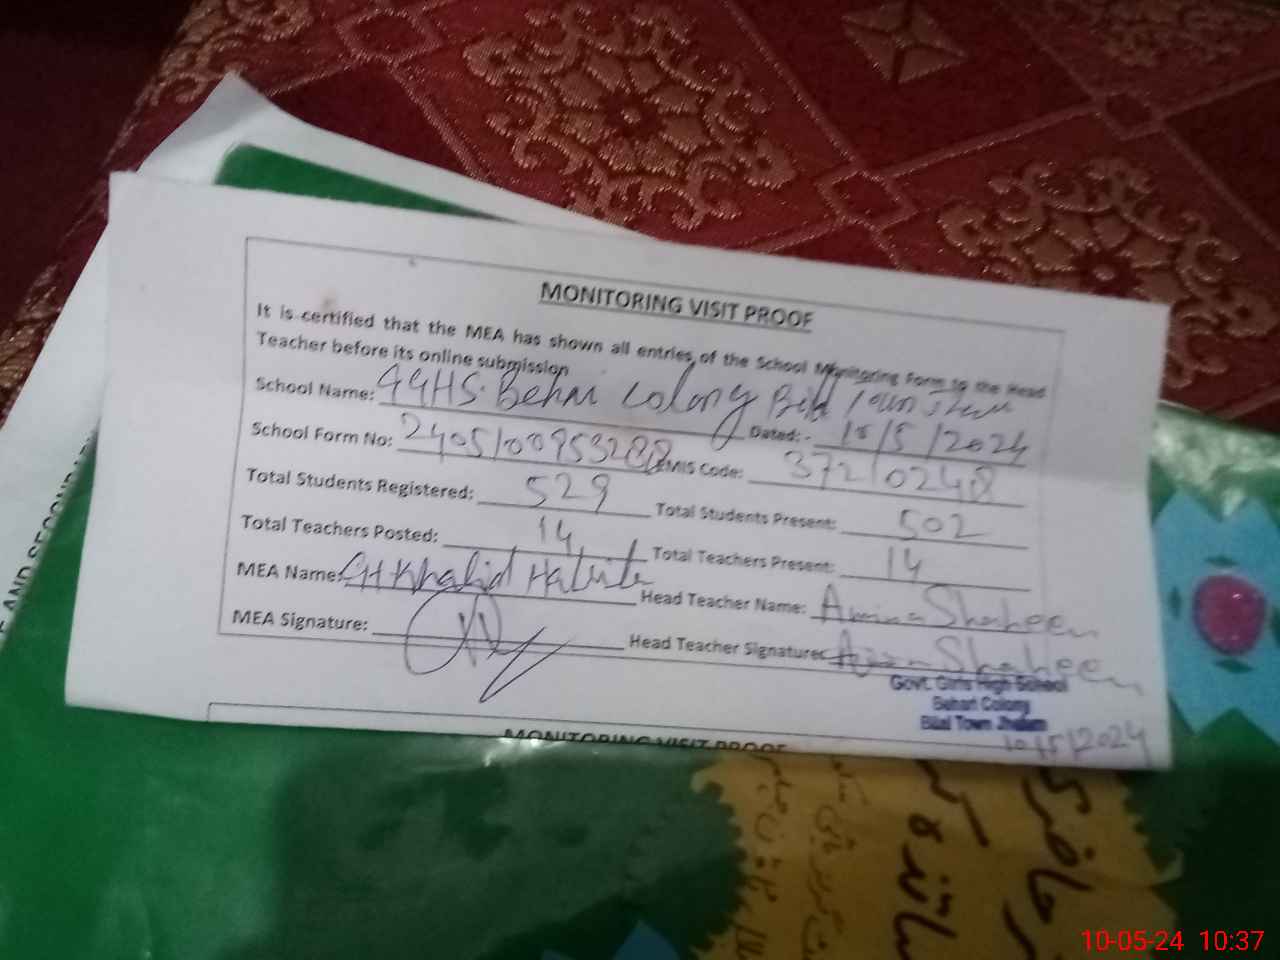 MONITORING VISIT PROOF
It is certified that the MEA has shown all entries of the School Monitoring Form to the Head
Teacher before its online submission
School Name: GGHS. Behari Colony Bilal Town
Dated: - 10/5/2024
School Form No: EMIS Code: 37210248
Total Students Registered: 529 Total Students Present: 502
Total Teachers Posted: 14 Total Teachers Present: 14
MEA Name: Khalid Head Teacher Name: Amina Shaheen
MEA Signature: Head Teacher Signature: Shaheen
Govt. Girls High School
Behari Colony
Bilal Town Jhelum
10/5/2024
MONITORING VISIT PROOF
10-05-24 10:37